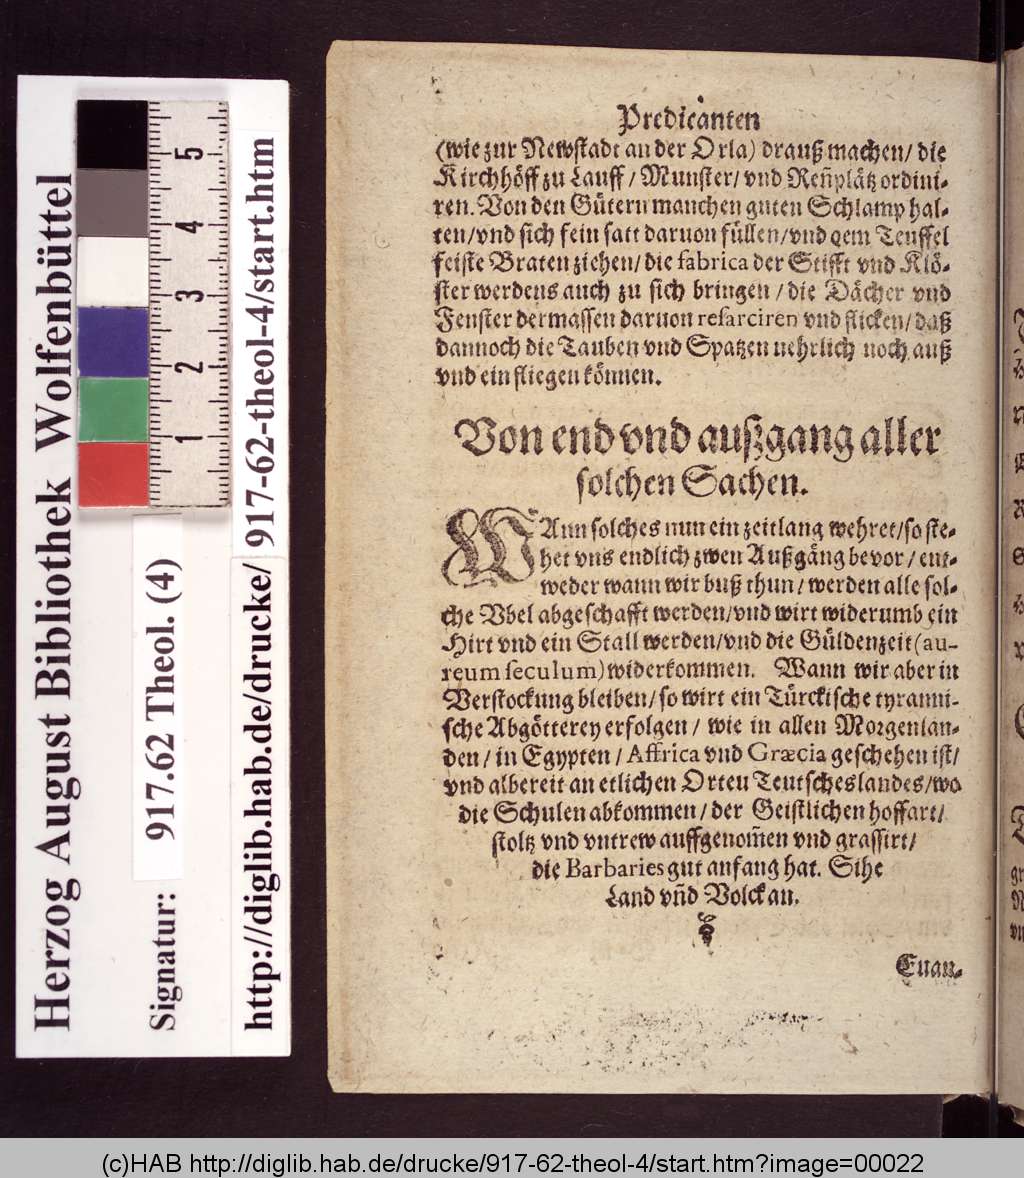 Predicanten
(wie zur Newstadt an der Orla) drauß machen/ die
Kirchhöff zu Lauff/ Munster/ vnd Reñplätz ordini-
ren. Von den Gütern manchen guten Schlamp hal-
ten/ vnd sich fein satt daruon füllen/ vnd dem Teuffel
feiste Braten ziehen/ die fabrica der Stifft vnd Klö-
ster werdens auch zu sich bringen/ die Dächer vnd
Fenster dermassen daruon resarciren vnd flicken/ daß
dannoch die Tauben vnd Spatzen nehrlich noch auß
vnd ein fliegen können.
Von end vnd außgang aller
solchen Sachen.
WAnn solches nun ein zeitlang wehret/ so ste-
het vns endlich zwen Außgäng bevor/ ent-
weder wann wir buß thun/ werden alle sol-
che Vbel abgeschafft werden/ vnd wirt widerumb ein
Hirt vnd ein Stall werden/ vnd die Güldenzeit (au-
reum seculum) widerkommen. Wann wir aber in
Verstockung bleiben/ so wirt ein Türckische tyranni-
sche Abgötterey erfolgen/ wie in allen Morgenlan-
den/ in Egypten/ Affrica vnd Græcia geschehen ist/
vnd albereit an etlichen Orten Teutscheslandes/ wo
die Schulen abkommen/ der Geistlichen hoffart/
stoltz vnd vntrew auffgenom̃en vnd grassirt/
die Barbaries gut anfang hat. Sihe
Land vñd Volck an.
Euan-
Herzog August Bibliothek Wolfenbüttel
Signatur: 917.62 Theol. (4)
http://diglib.hab.de/drucke/ 917-62-theol-4/start.htm
5
4
3
2
1
(c)HAB http://diglib.hab.de/drucke/917-62-theol-4/start.htm?image=00022